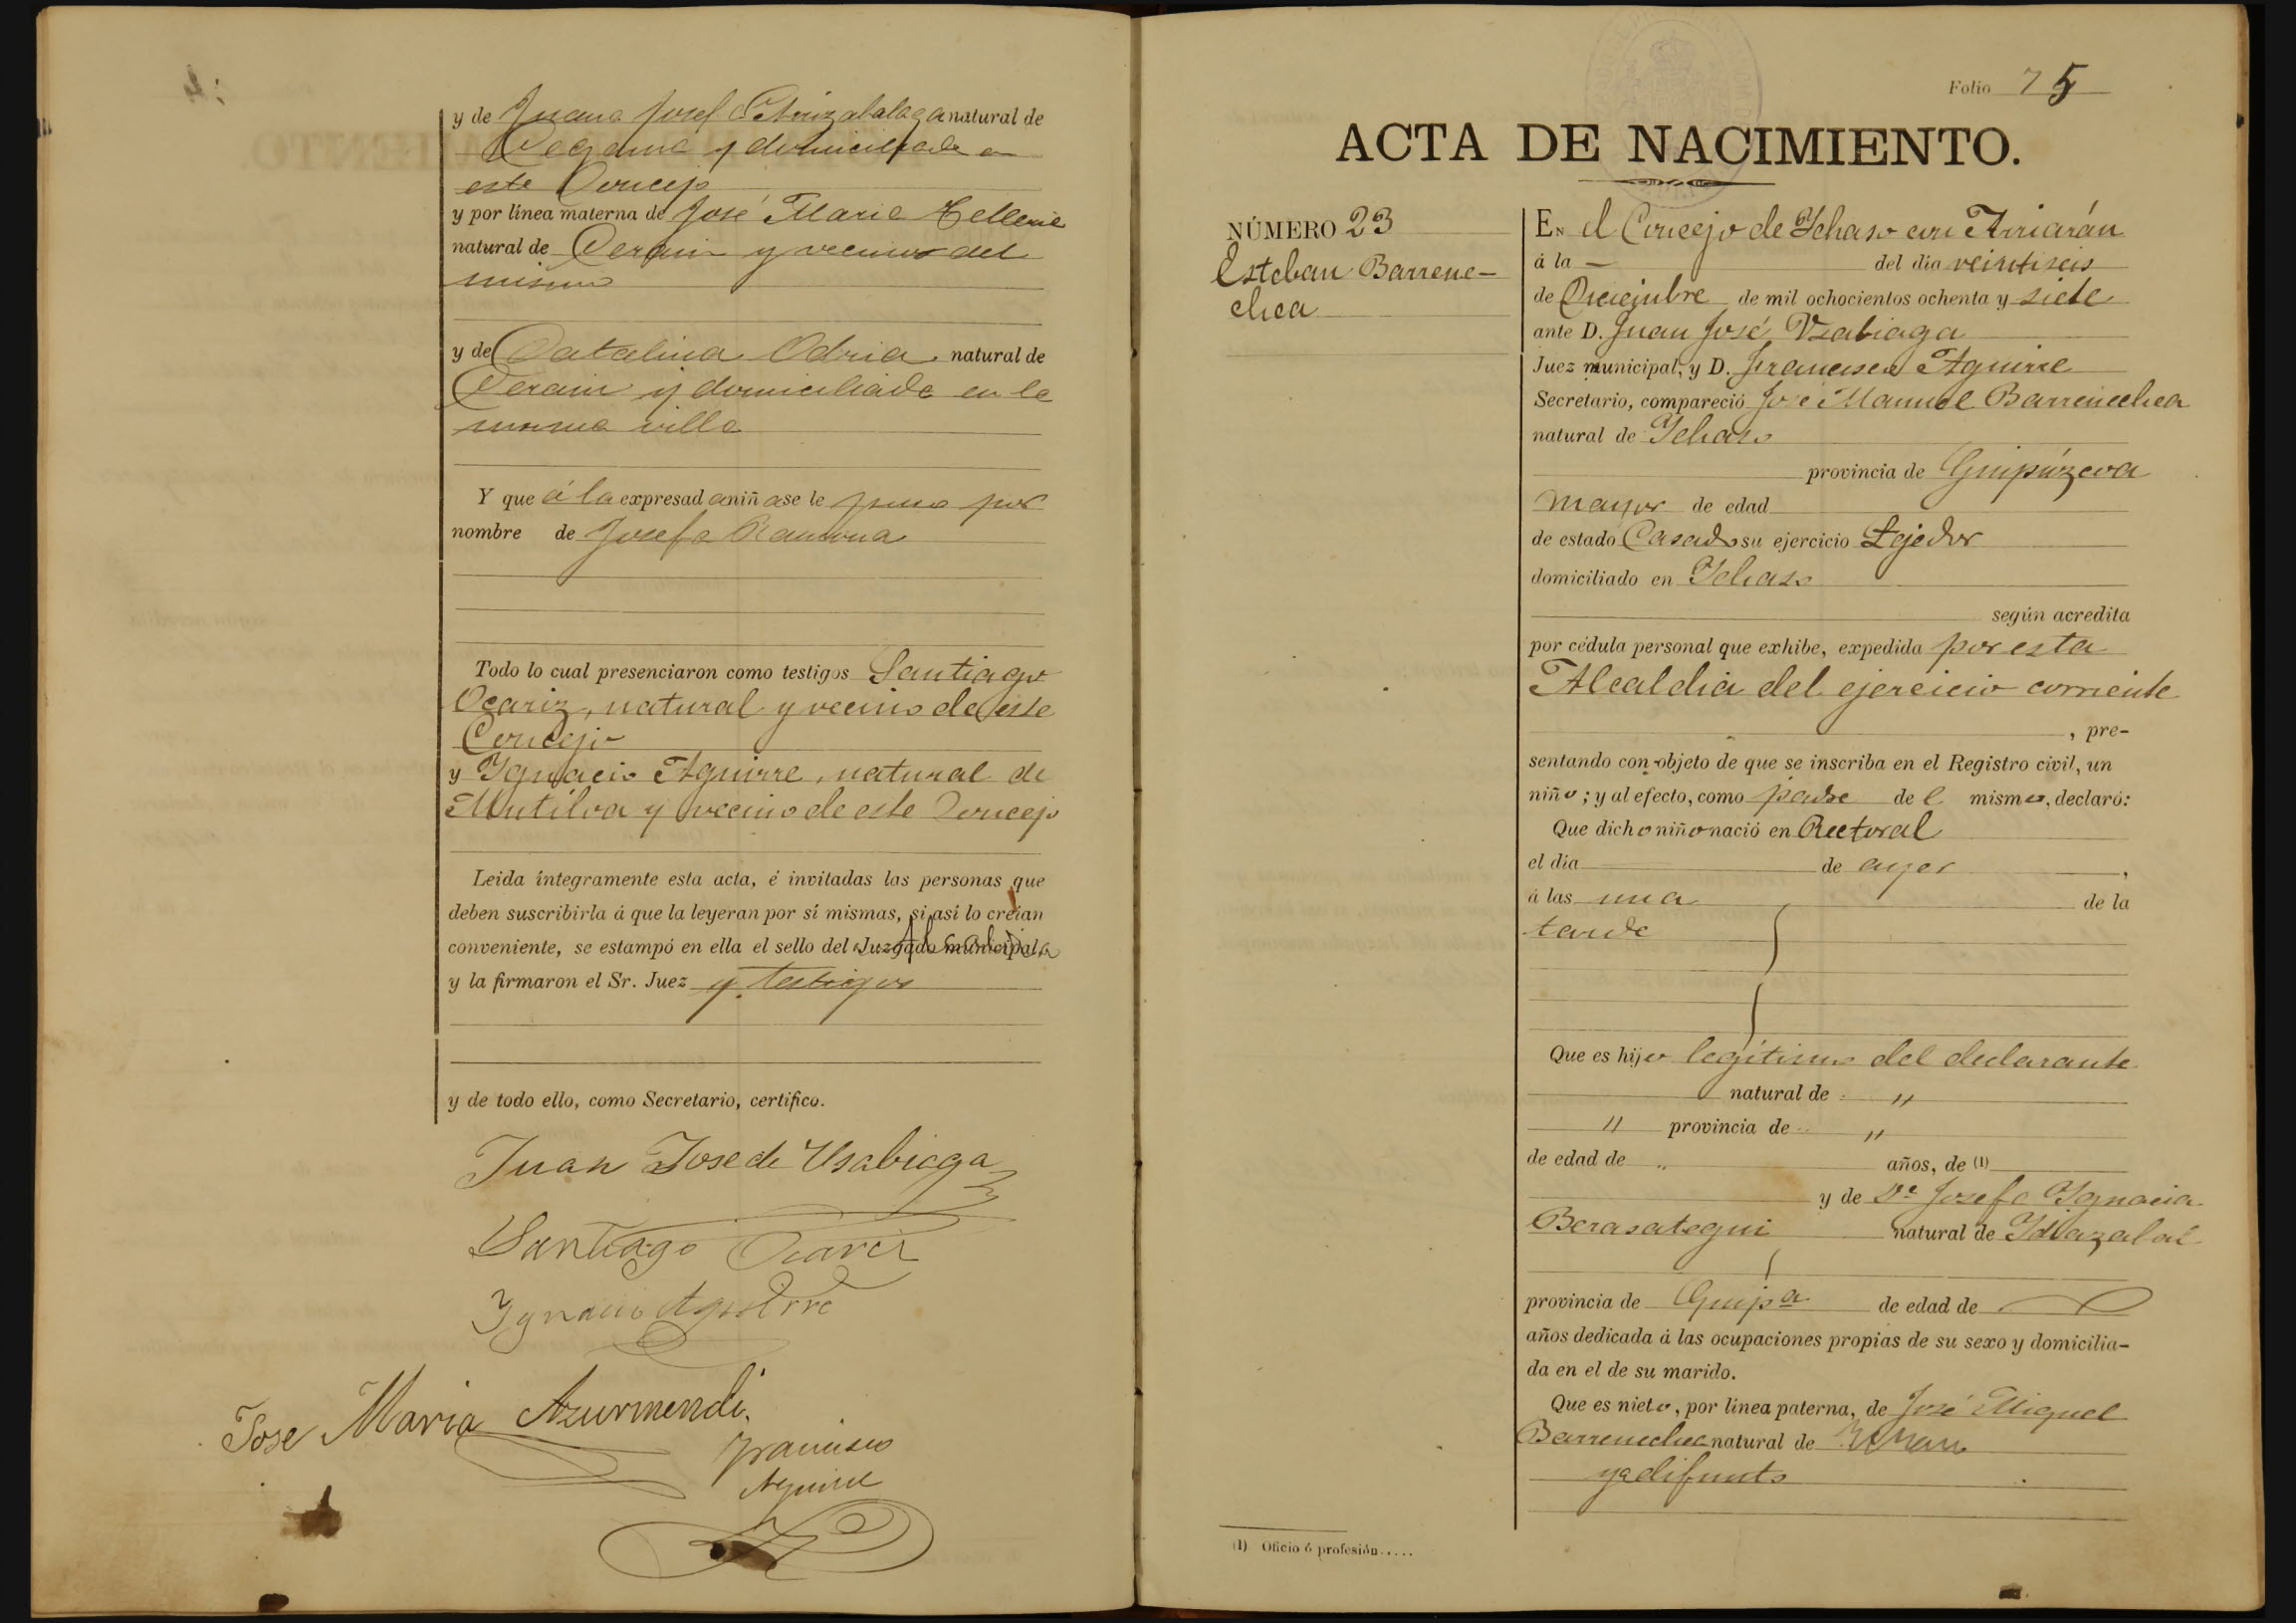 y de Juana Josefa Arrizabalaga natural de
Cegama y domiciliada en
este Concejo
y por línea materna de José Maria Telleria
natural de Cerain y vecino del
mismo
y de Catalina Odria natural de
Cerain y domiciliada en la
misma villa
Y que á la expresad a niñ a se le puso por
nombre de Josefa Ramona
Todo lo cual presenciaron como testigos Santiago
Ocariz, natural y vecino de este
Concejo
y Ygnacio Aguirre, natural de
Mutiloa y vecino de este Concejo
Leida íntegramente esta acta, é invitadas las personas que
deben suscribirla á que la leyeran por sí mismas, si así lo creían
conveniente, se estampó en ella el sello del Juzgado municipal Alcaldia
y la firmaron el Sr. Juez y testigos
y de todo ello, como Secretario, certifico.
Juan Jose de Usabiaga
Santiago Ocariz
Ygnacio Aguirre
Jose Maria Azurmendi
Francisco
Aguirre
Folio 75
ACTA DE NACIMIENTO.
NÚMERO 23
Esteban Barrene-
chea
EN el Concejo de Ychaso con Arriarán
á la — del dia veintiseis
de Diciembre de mil ochocientos ochenta y siete
ante D. Juan José Usabiaga
Juez municipal, y D. Francisco Aguirre
Secretario, compareció José Manuel Barrenechea
natural de Ychaso
provincia de Guipúzcoa
mayor de edad
de estado Casado su ejercicio Tejedor
domiciliado en Ychaso
según acredita
por cédula personal que exhibe, expedida por esta
Alcaldia del ejercicio corriente
, pre-
sentando con objeto de que se inscriba en el Registro civil, un
niño; y al efecto, como padre de l mismo, declaró:
Que dicho niño nació en Rectoral
el dia de ayer,
á las una de la
tarde
Que es hijo legítimo del declarante
natural de "
" provincia de "
de edad de " años, de (1)
y de Dª Josefa Ygnacia
Berasategui natural de Ydiazabal
provincia de Guipª de edad de
años dedicada á las ocupaciones propias de su sexo y domicilia-
da en el de su marido.
Que es nieto, por línea paterna, de José Miguel
Barrenechea natural de
ya difunto
(1) Oficio ó profesión.....